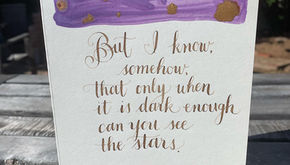 But I know,
somehow,
that only when
it is dark enough
can you see
the stars.